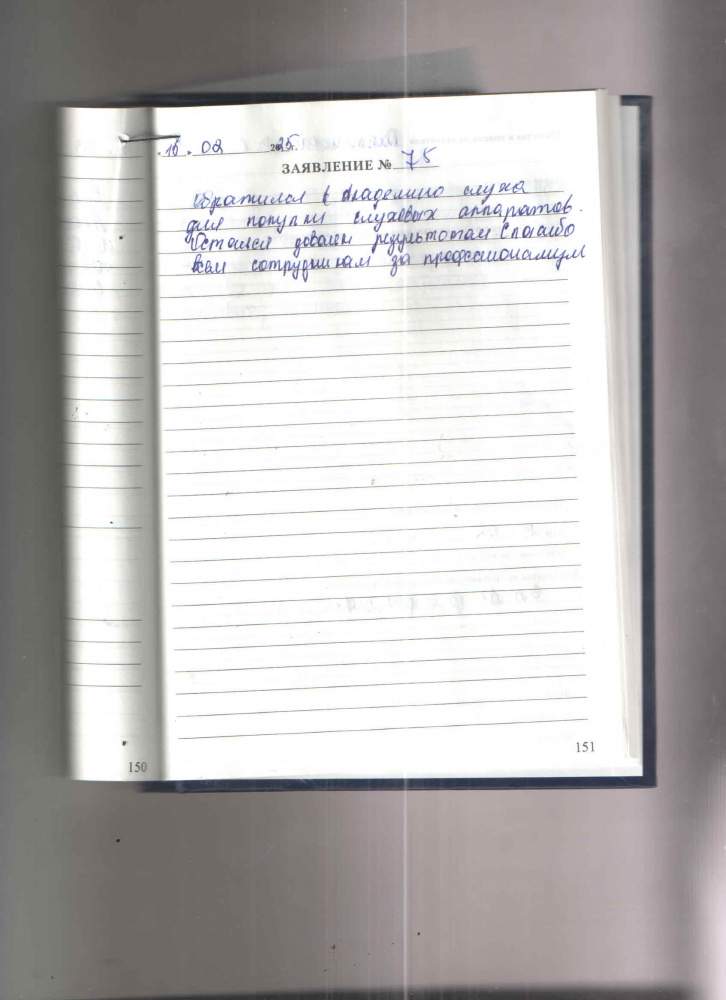 16.02 2025г.
ЗАЯВЛЕНИЕ № 75
Обратился в Академию слуха
для покупки слуховых аппаратов.
Остался доволен результатом Спасибо
всем сотрудникам за профессионализм
151
150